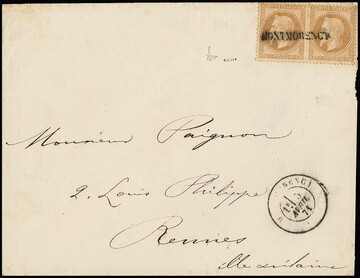 MONTMORENCY
Monsieur Paignon
2. Louis Philippe
Rennes
ille vilaine
AVRIL
71